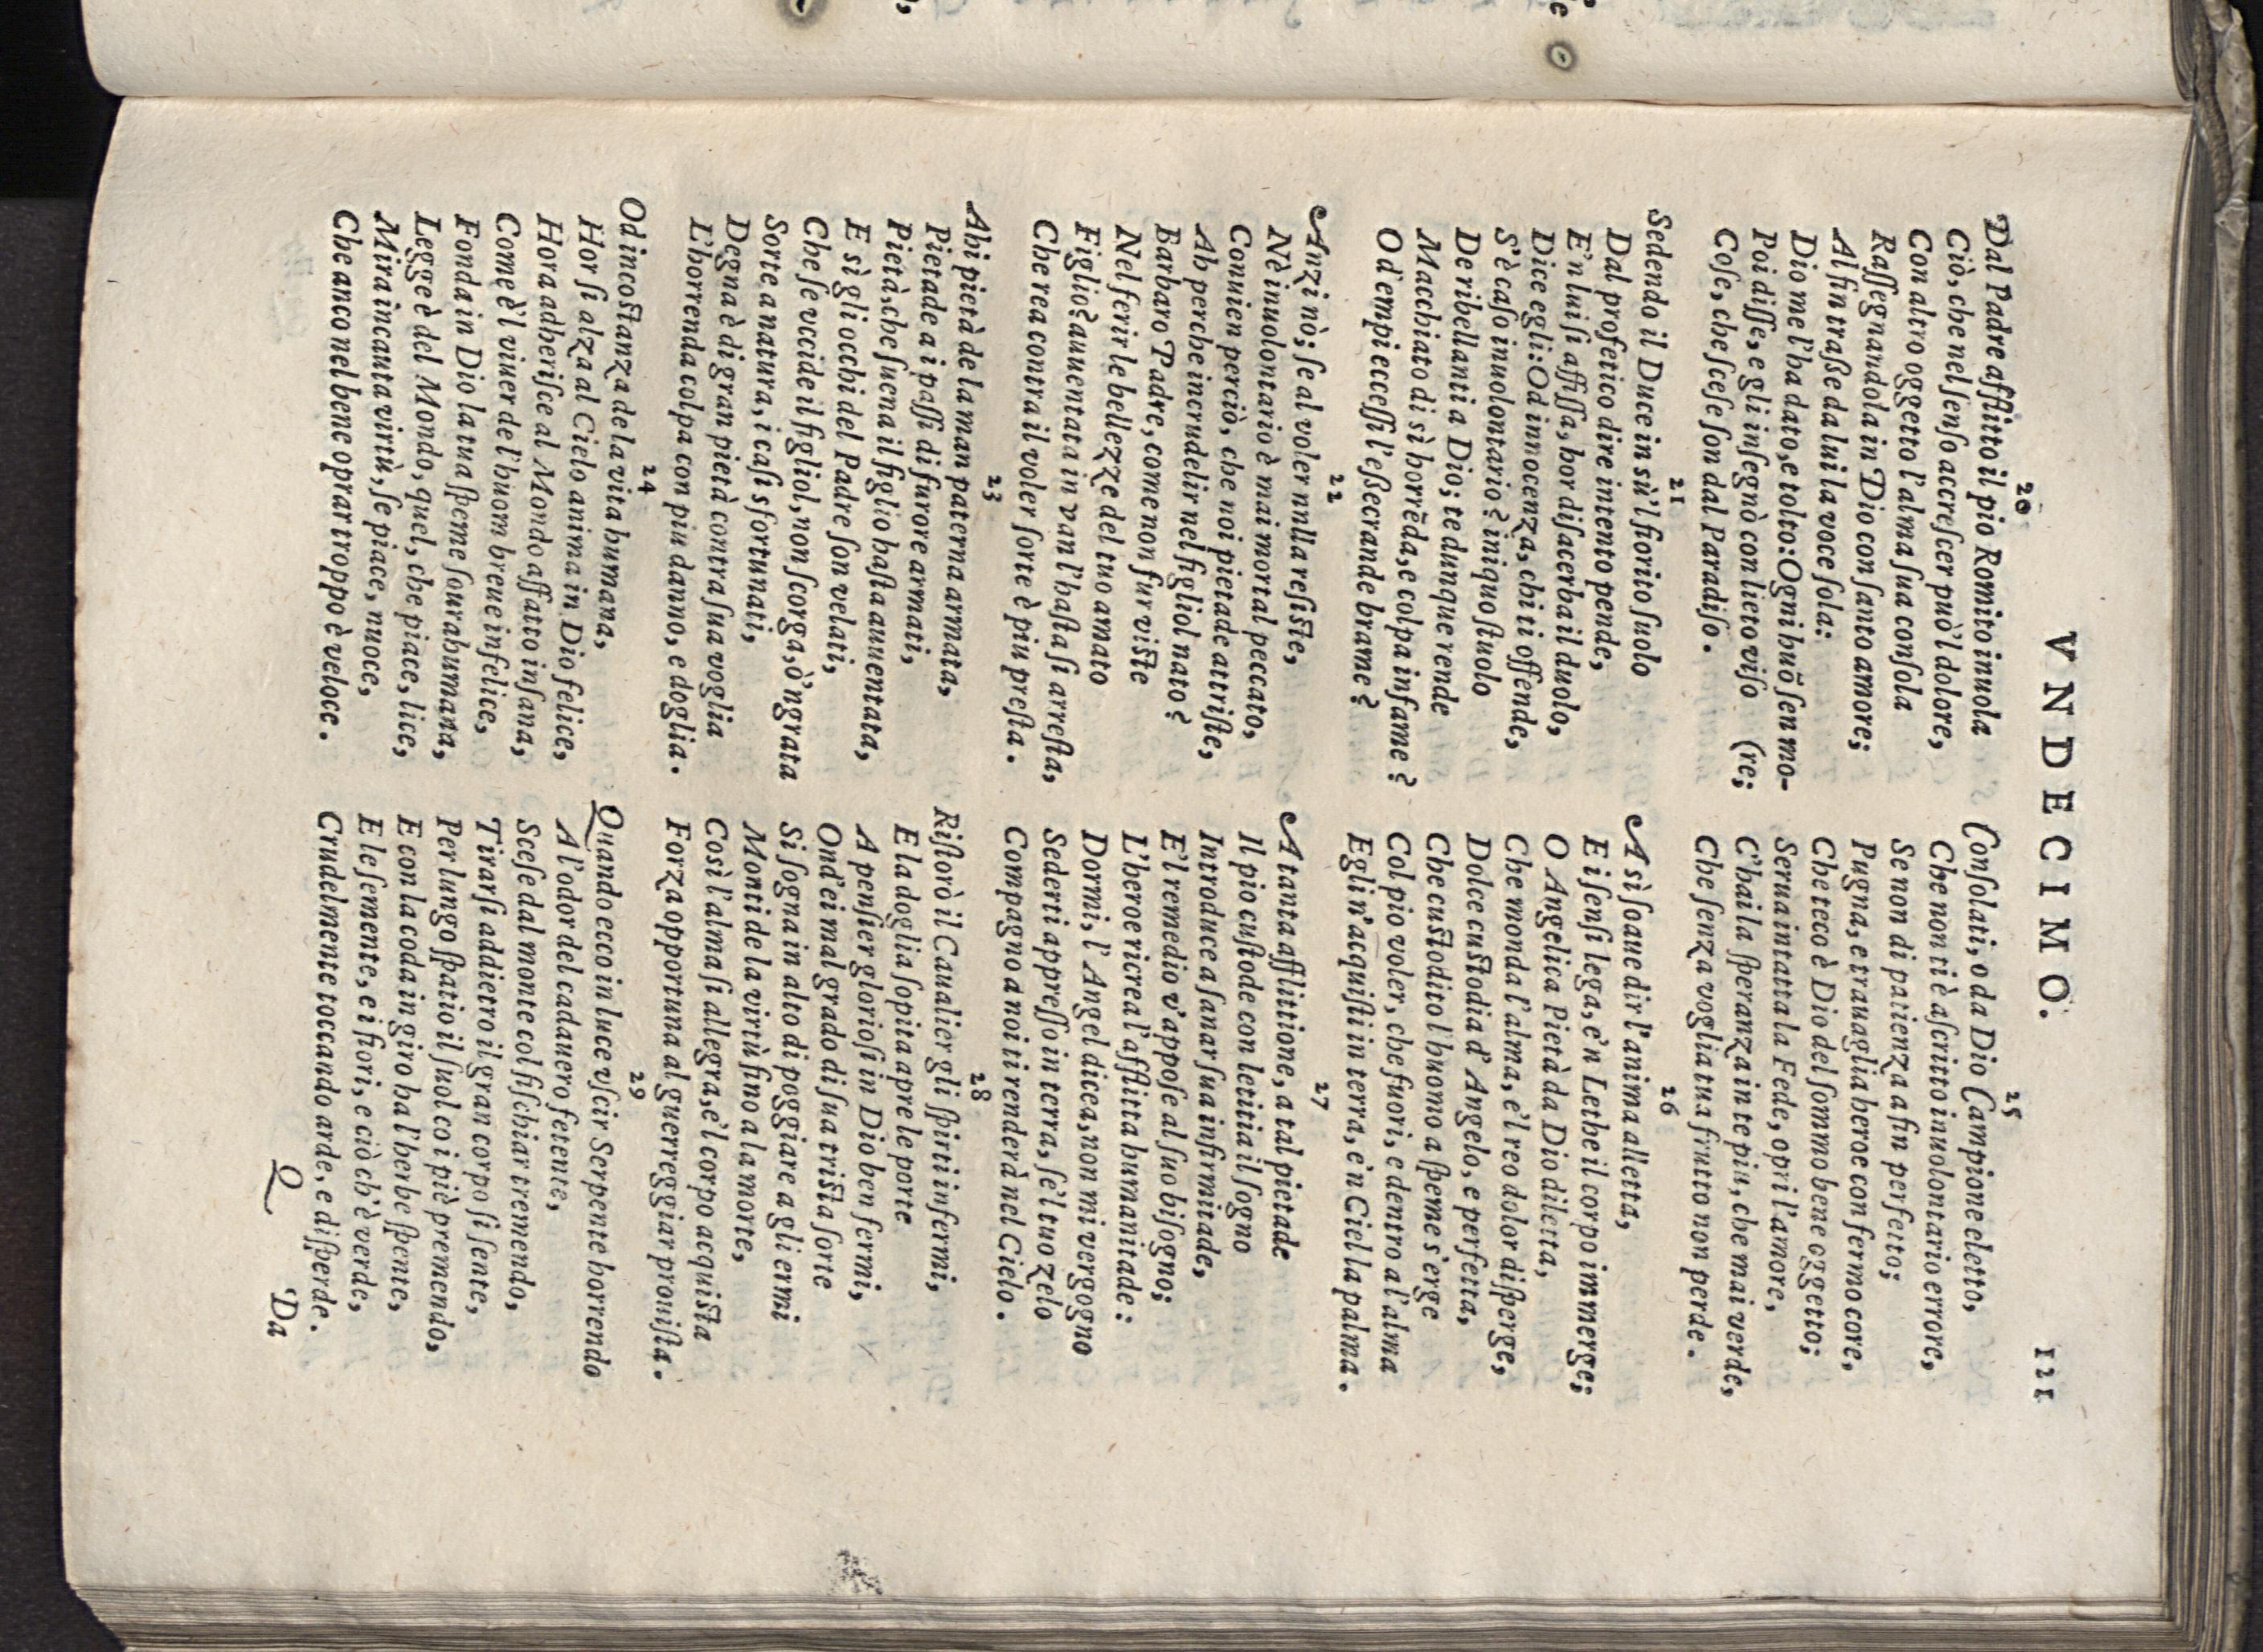 VNDECIMO. 121
20
Dal Padre afflitto il pio Romito inuola
Ciò, che nel ſenſo accreſcer può'l dolore,
Con altro oggetto l'alma ſua conſola
Raſſegnandola in Dio con ſanto amore;
Al fin traſse da lui la voce ſola:
Dio me l'ha dato, e tolto: Ogni huõ ſen mo-
Poi diſſe, e gli inſegnò con lieto viſo (re;
Coſe, che ſceſe ſon dal Paradiſo.
21
Sedendo il Duce in sù'l fiorito ſuolo
Dal profetico dire intento pende,
E'n lui ſi affiſſa, hor diſacerba il duolo,
Dice egli: Od innocenza, chi ti offende,
S'è caſo inuolontario? iniquo ſtuolo
De ribellanti a Dio; te dunque rende
Macchiato di sì horrẽda, e colpa infame?
O d'empi ecceſſi l'eſsecrande brame?
22
Anzi nò; ſe al voler nulla reſiſte,
Nè inuolontario è mai mortal peccato,
Conuien perciò, che noi pietade attriſte,
Ah perche incrudelir nel figliol nato?
Barbaro Padre, come non fur viſte
Nel ferir le bellezze del tuo amato
Figlio? auuentata in van l'haſta ſi arreſta,
Che rea contra il voler ſorte è piu preſta.
23
Ahi pietà de la man paterna armata,
Pietade a i paſſi di furore armati,
Pietà, che ſuena il figlio haſta auuentata,
E sì gli occhi del Padre ſon velati,
Che ſe vccide il figliol, non ſcorga, ò'ngrata
Sorte a natura, i caſi sfortunati,
Degna è di gran pietà contra ſua voglia
L'horrenda colpa con piu danno, e doglia.
24
Od incoſtanza de la vita humana,
Hor ſi alza al Cielo anima in Dio felice,
Hora adheriſce al Mondo affatto inſana,
Come è'l viuer de l'huom breue infelice,
Fonda in Dio la tua ſpeme ſourahumana,
Legge è del Mondo, quel, che piace, lice,
Mira incauta virtù, ſe piace, nuoce,
Che anco nel bene oprar troppo è veloce.
25
Conſolati, o da Dio Campione eletto,
Che non ti è aſcritto inuolontario errore,
Se non di patienza a fin perfetto;
Pugna, e trauaglia heroe con fermo core,
Che teco è Dio del ſommo bene oggetto;
Serua intatta la Fede, opri l'amore,
C'hai la ſperanza in te piu, che mai verde,
Che ſenza voglia tua frutto non perde.
26
A sì ſoaue dir l'anima alletta,
E i ſenſi lega, e'n Lethe il corpo immerge;
O Angelica Pietà da Dio diletta,
Che monda l'alma, e'l reo dolor diſperge,
Dolce cuſtodia d'Angelo, e perfetta,
Che cuſtodito l'huomo a ſpeme s'erge
Col pio voler, che fuori, e dentro a l'alma
Egli n'acquiſti in terra, e'n Ciel la palma.
27
A tanta afflittione, a tal pietade
Il pio cuſtode con letitia il ſogno
Introduce a ſanar ſua infirmitade,
E'l remedio v'appoſe al ſuo biſogno;
L'heroe ricrea l'afflitta humanitade:
Dormi, l'Angel dicea, non mi vergogno
Sederti appreſſo in terra, ſe'l tuo zelo
Compagno a noi ti renderà nel Cielo.
28
Riſtorò il Caualier gli ſpiti infermi,
E la doglia ſopita apre le porte
A penſier glorioſi in Dio ben fermi,
Ond'ei mal grado di ſua triſta ſorte
Si ſogna in alto di poggiare a gli ermi
Monti de la virtù fino a la morte,
Così l'alma ſi allegra, e'l corpo acquiſta
Forza opportuna al guerreggiar prouiſta.
29
Quando ecco in luce vſcir Serpente horrendo
A l'odor del cadauero fetente,
Sceſe dal monte col fiſchiar tremendo,
Tirarſi addietro il gran corpo ſi ſente,
Per lungo ſpatio il ſuol co i piè premendo,
E con la coda in giro ha l'herbe ſpente,
E le ſemente, e i fiori, e ciò ch'è verde,
Crudelmente toccando arde, e diſperde.
Q Da